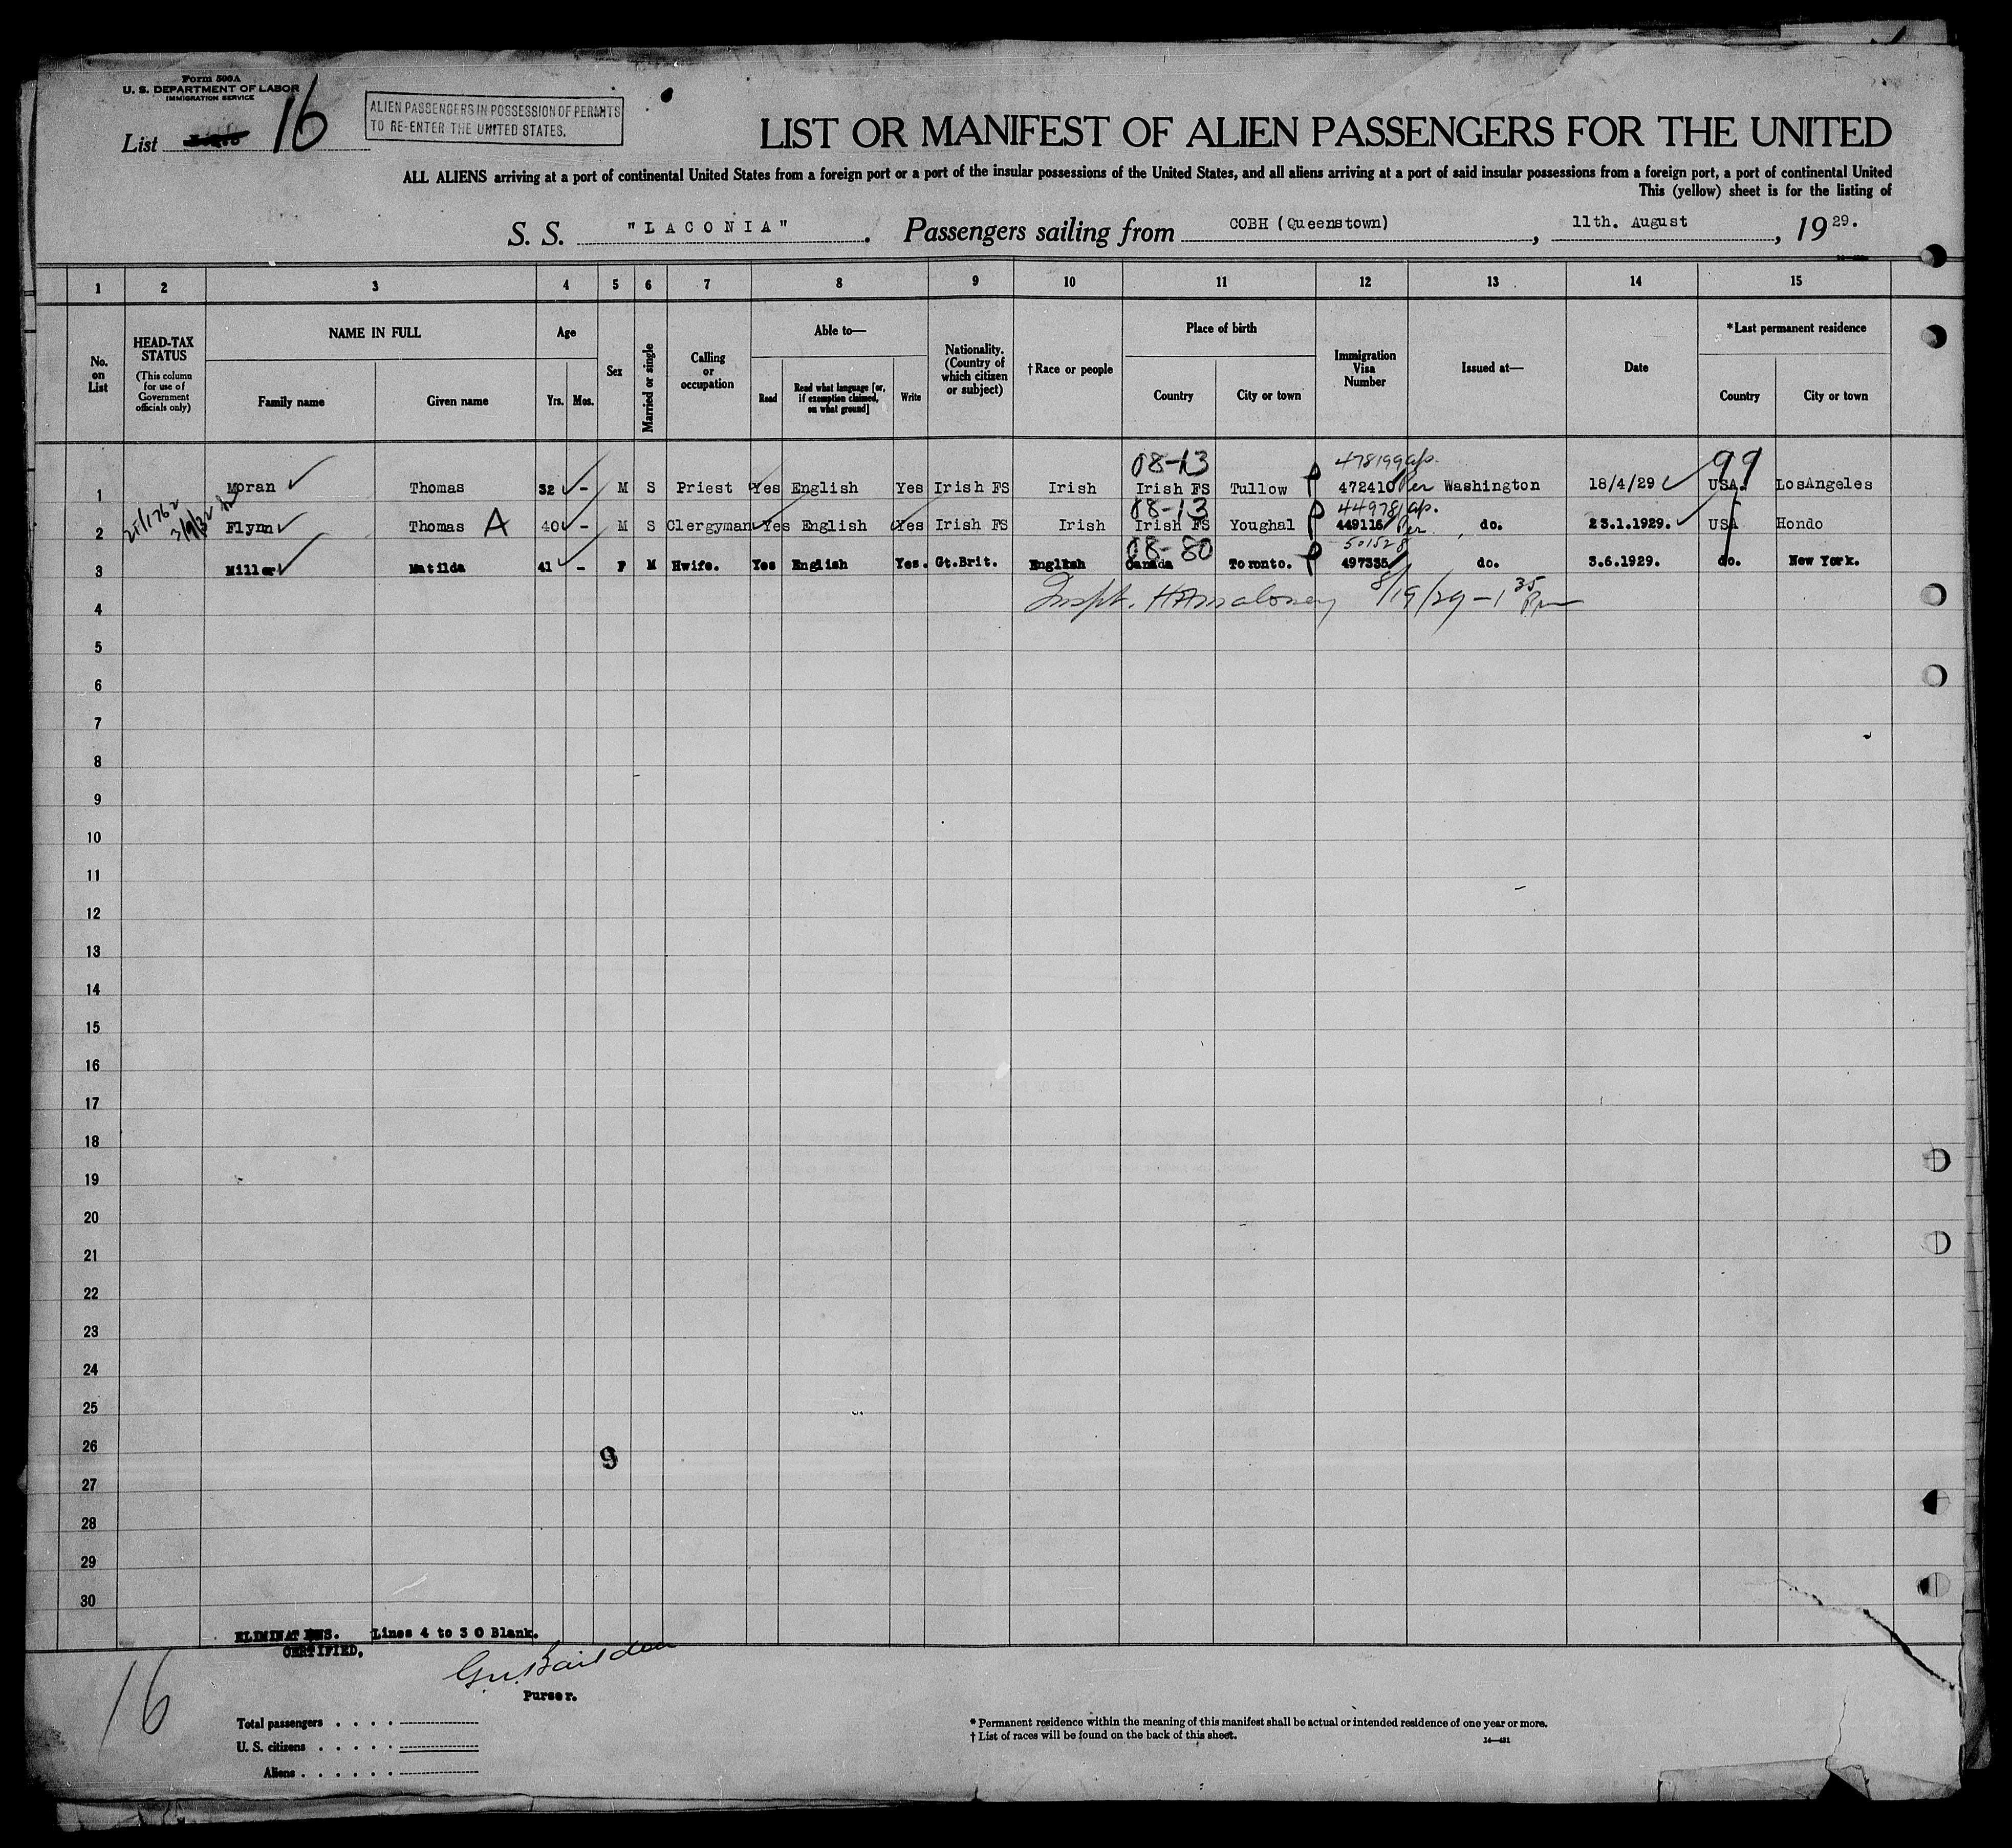 Form 500A
U. S. DEPARTMENT OF LABOR
IMMIGRATION SERVICE
List 16
ALIEN PASSENGERS IN POSSESSION OF PERMITS
TO RE-ENTER THE UNITED STATES.
LIST OR MANIFEST OF ALIEN PASSENGERS FOR THE UNITED
ALL ALIENS arriving at a port of continental United States from a foreign port or a port of the insular possessions of the United States, and all aliens arriving at a port of said insular possessions from a foreign port, a port of continental United
This (yellow) sheet is for the listing of
S. S. "LACONIA" . Passengers sailing from COBH (Queenstown) , 11th. August , 19 29.
1 2 3 4 5 6 7 8 9 10 11 12 13 14 15
No. on List
HEAD-TAX STATUS (This column for use of Government officials only)
NAME IN FULL
Family name Given name
Age
Yrs. Mos.
Sex
Married or single
Calling or occupation
Able to—
Read Read what language [or, if exemption claimed, on what ground] Write
Nationality. (Country of which citizen or subject)
†Race or people
Place of birth
Country City or town
Immigration Visa Number
Issued at—
Date
*Last permanent residence
Country City or town
08-13 478199 99
1 Moran Thomas 32 - M S Priest Yes English Yes Irish FS Irish Irish FS Tullow 472410 Per Washington 18/4/29 USA. LosAngeles
08-13 449781
2 Flynn Thomas A 40 - M S Clergyman Yes English Yes Irish FS Irish Irish FS Youghal 449116 Per do. 23.1.1929. USA Hondo
08-80 501528
3 Miller Matilda 41 - F M Hwife. Yes English Yes. Gt.Brit. English Canada Toronto. 497335 do. 3.6.1929. do. New York.
4 Inspt. HAMaloney 8/19/29 - 1 35 Pm
5
6
7
8
9
10
11
12
13
14
15
16
17
18
19
20
21
22
23
24
25
26 9
27
28
29
30
ELIMINATIONS. Lines 4 to 30 Blank.
CERTIFIED,
16
Purser.
Total passengers . . . .
U. S. citizens . . . . .
Aliens . . . . . .
* Permanent residence within the meaning of this manifest shall be actual or intended residence of one year or more.
† List of races will be found on the back of this sheet.
14—431